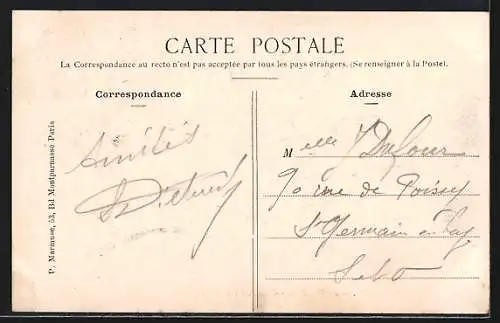 CARTE POSTALE
La Correspondance au recto n'est pas acceptée par tous les pays étrangers. (Se renseigner à la Poste).
Correspondance
Adresse
P. Marmuse, 53, Bd Montparnasse Paris
Amitiés
Melle Dufour
90 rue de Poissy
St Germain en Lay
S et O